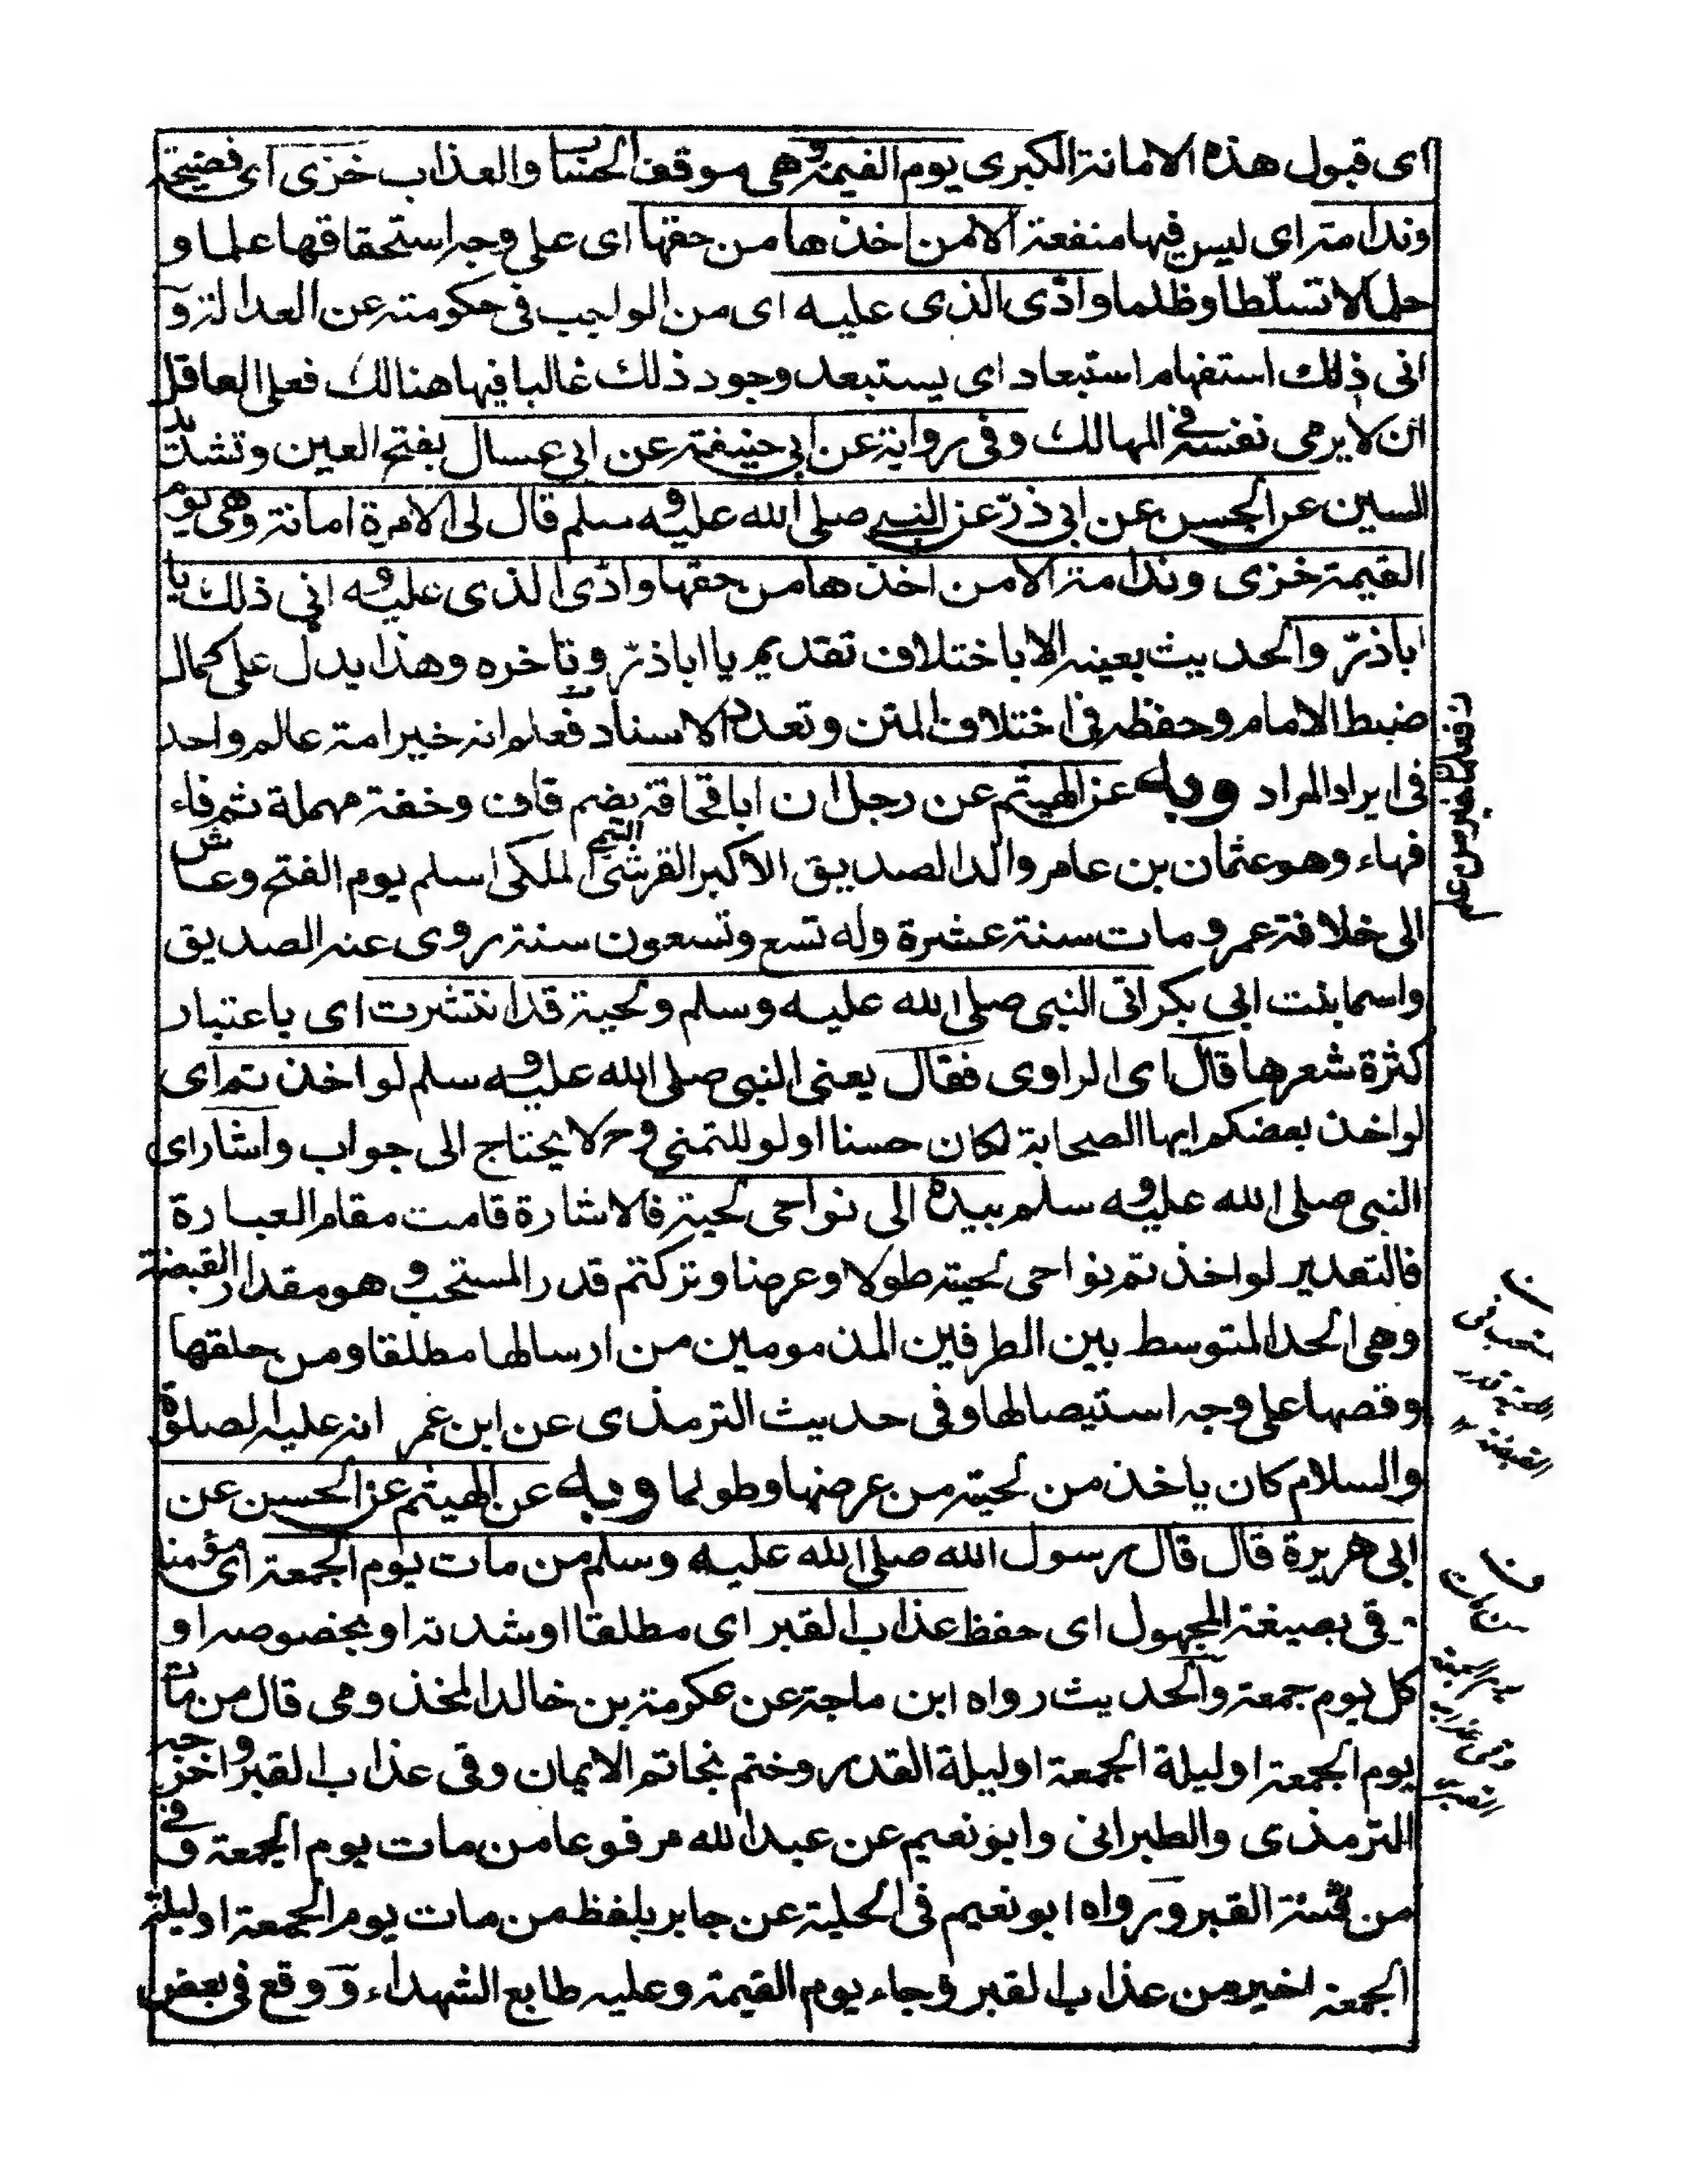 اى قبول هذه الامانة الكبرى يوم القيمة وهى موقف الحساب والعذاب خزى اى فضيحة
وندامة اى ليس فيها منفعة الا من اخذها من حقها اى على وجه استحقاقها علما و
حلما لا تسلّطا وظلما وادّى الذى عليه اى من الواجب فى حكومته عن العدالة و
انى ذلك استفهام استبعاد اى يستبعد وجود ذلك غالبا فيها هنالك فعلى العاقل
ان لا يرمى نفسه فى المهالك وفى رواية عن ابى حنيفة عن ابى عسال بفتح العين وتشديد
السين عن الحسن عن ابى ذرّ عن النبى صلى الله عليه وسلم قال لى الامرة امانة وهى يوم
القيمة خزى وندامة الا من اخذها من حقها وادّى الذى عليه وانى ذلك يا
اباذرّ والحديث بعينه الا باختلاف تقديم يا اباذرّ وتاخره وهذا يدل على كمال
ضبط الامام وحفظه فى اختلاف المتن وتعدد الاسناد فعلم انه خير امة عالم واحد
فى ايراد المراد وبه عن الهيثم عن رجل ان اباقحافة بضم قاف وخفة مهملة ثم فاء
فهاء وهو عثمان بن عامر والد الصديق الاكبر القرشى التيمى المكى اسلم يوم الفتح وعاش
الى خلافة عمر ومات سنة عشرة وله تسع وتسعون سنة روى عنه الصديق
واسما بنت ابى بكر اتى النبى صلى الله عليه وسلم ولحيته قد انتشرت اى باعتبار
كثرة شعرها قال اى الراوى فقال يعنى النبى صلى الله عليه وسلم لو اخذتم اى
لو اخذ بعضكم ايها الصحابة لكان حسنا او لو للتمنى وح لا يحتاج الى جواب واشار اى
النبى صلى الله عليه وسلم بيده الى نواحى لحيته فالاشارة قامت مقام العبارة
فالتقدير لو اخذتم نواحى لحيته طولا وعرضا وتركتم قدر المستحب وهو مقدار القبضة
وهى الحد المتوسط بين الطرفين المذمومين من ارسالها مطلقا ومن حلقها
وقصها على وجه استيصالها وفى حديث الترمذى عن ابن عمر انه عليه الصلوة
والسلام كان ياخذ من لحيته من عرضها وطولها وبه عن الهيثم عن الحسن عن
ابى هريرة قال قال رسول الله صلى الله عليه وسلم من مات يوم الجمعة اى مؤمنا
وقى بصيغة المجهول اى حفظ عذاب القبر اى مطلقا او شدته او بخصوصه او
كل يوم جمعة والحديث رواه ابن ماجة عن عكرمة بن خالد المخذومى قال من مات
يوم الجمعة او ليلة الجمعة او ليلة القدر وختم بخاتم الايمان وقى عذاب القبر واخرجه
الترمذى والطبرانى وابو نعيم عن عبد الله مرفوعا من مات يوم الجمعة وقى
من فتنة القبر ورواه ابو نعيم فى الحلية عن جابر بلفظ من مات يوم الجمعة او ليلة
الجمعة اجير من عذاب القبر وجاء يوم القيمة وعليه طابع الشهداء ووقع فى بعض